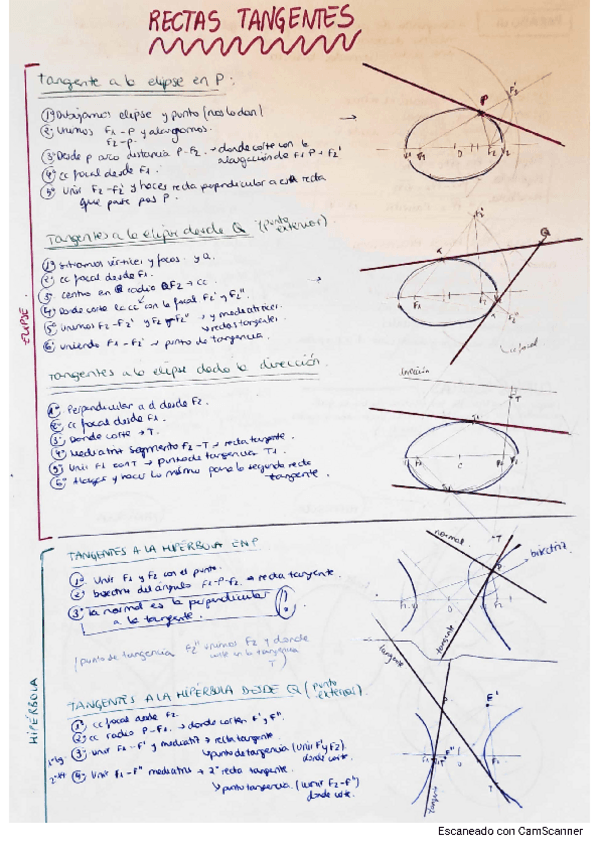 RECTAS TANGENTES
ELIPSE
Tangente a la elipse en P:
1º Dibujamos elipse y punto (nos lo dan)
2º Unimos F1-P y alargamos.
F2-P.
3º Desde P arco distancia P-F2 → donde corte con la
alargación de F1 P → F2'
4º cc focal desde F1.
5º Unir F2-F2' y haces recta perpendicular a esta recta
que pase por P.
Tangentes a la elipse desde Q (punto
exterior).
1º Situamos vértices y focos y Q.
2º cc focal desde F1.
3º centro en Q radio QF2 → cc
4º Donde corte la cc con la focal F2' y F2''.
5º unimos F2-F2' y F2-F2'' → y mediatrices.
↳ rectas tangentes.
6º uniendo F1-F2' → punto de tangencia.
Tangentes a la elipse dada la dirección.
1º Perpendicular a d desde F2.
2º cc focal desde F1.
3º Donde corte → T.
4º Mediatriz segmento F2-T → recta tangente.
5º Unir F1 con T → punto de tangencia T1.
6º Alargas y haces lo mismo para la segunda recta
tangente.
HIPÉRBOLA
TANGENTES A LA HIPÉRBOLA EN P
1º Unir F1 y F2 con el punto.
2º bisectriz del ángulo F1-P-F2 → recta tangente.
3º la normal es la perpendicular
a la tangente.
!?
(punto de tangencia F2'' unimos F2 y donde
corte en la tangencia
T)
TANGENTES A LA HIPÉRBOLA DESDE Q (punto
exterior).
1º cc focal desde F2.
2º cc radio P-F1 → donde corten F' y F''.
3º unir F1-F' y mediatriz → recta tangente.
↳ punto de tangencia (unir F' y F2)
donde corte.
4º Unir F1-F'' mediatriz → 2ª recta tangente.
↳ punto tangencia (unir F2-F'')
donde corte.
P
F1
O
F2
Q
cc focal
dirección
T
T1
C
normal
T
bisectriz
tangente
tangente
F'
F''
T
Escaneado con CamScanner